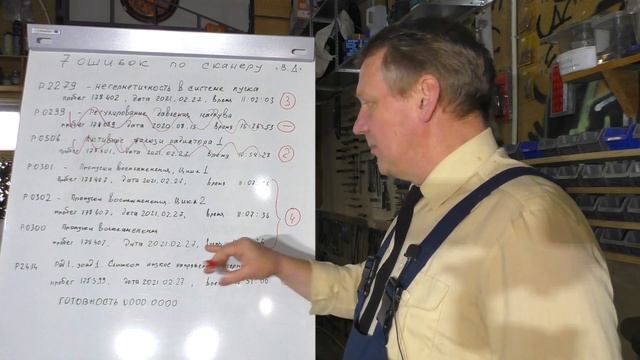 7 ошибок по сканеру В.Д.
P2279 - негерметичность в системе пуска
пробег 178402, дата 2021.02.22, время 11:02:03 ③
P0299 - Регулирование давления наддува
пробег дата время 15:28:53
P0506 - Активные жалюзи радиатора 1
пробег дата 2021.02.22, время 10:54:28 ②
P0301 - Пропуски воспламенения, Цил. 1
пробег 178407, дата 2021.02.27, время 11:02:
P0302 - Пропуски воспламенения, Цил. 2
пробег 178407, дата 2021.02.27, время 11:02:36 ④
P0300 Пропуски воспламенения
пробег 178407, дата 2021.02.27,
P2414 Слишком низкое
пробег 178399, дата 2021.02.27,
ГОТОВНОСТЬ 0000 0000